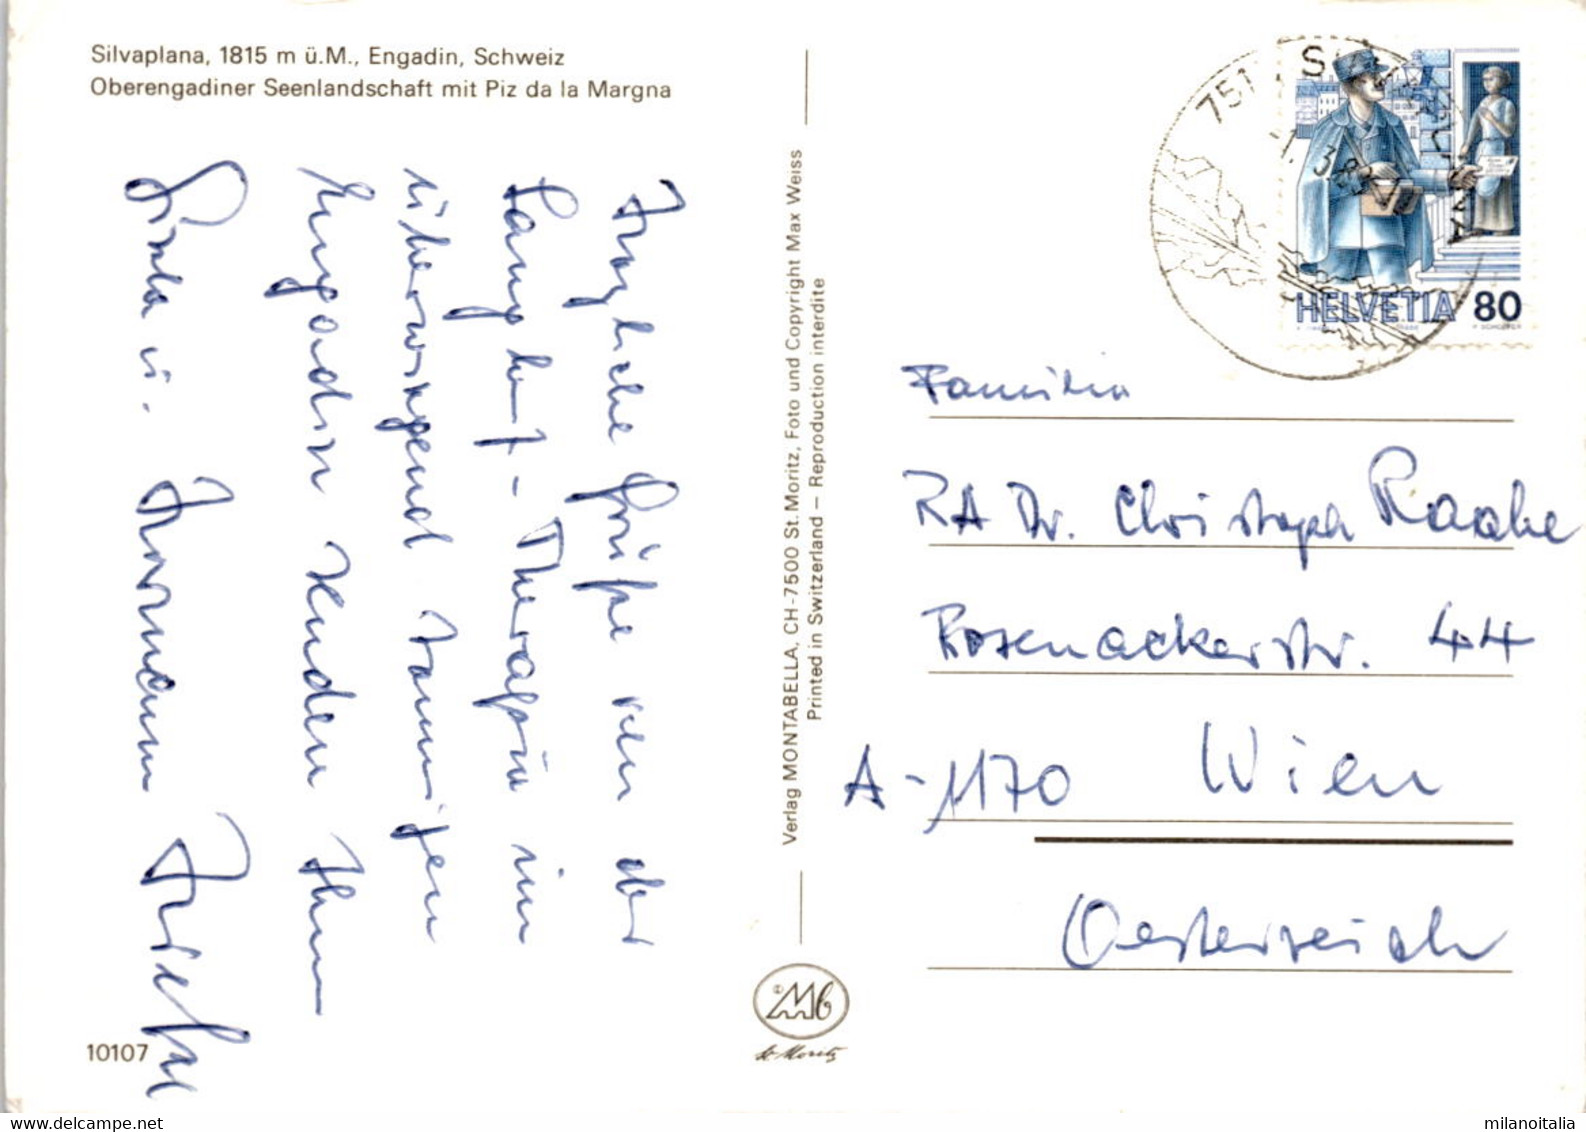 Silvaplana, 1815 m ü.M., Engadin, Schweiz
Oberengadiner Seenlandschaft mit Piz da la Margna
Herzliche Grüße von der
Langlauf-Therapie im
überwiegend sonnigen
Engadin senden Ihnen
u. Hermann
10107
Verlag MONTABELLA, CH-7500 St. Moritz, Foto und Copyright Max Weiss
Printed in Switzerland – Reproduction interdite
Mb
St. Moritz
HELVETIA 80
Familie
RA Dr. Christoph Raabe
Rosenackerstr. 44
A-1170 Wien
Oesterreich
milanoitalia